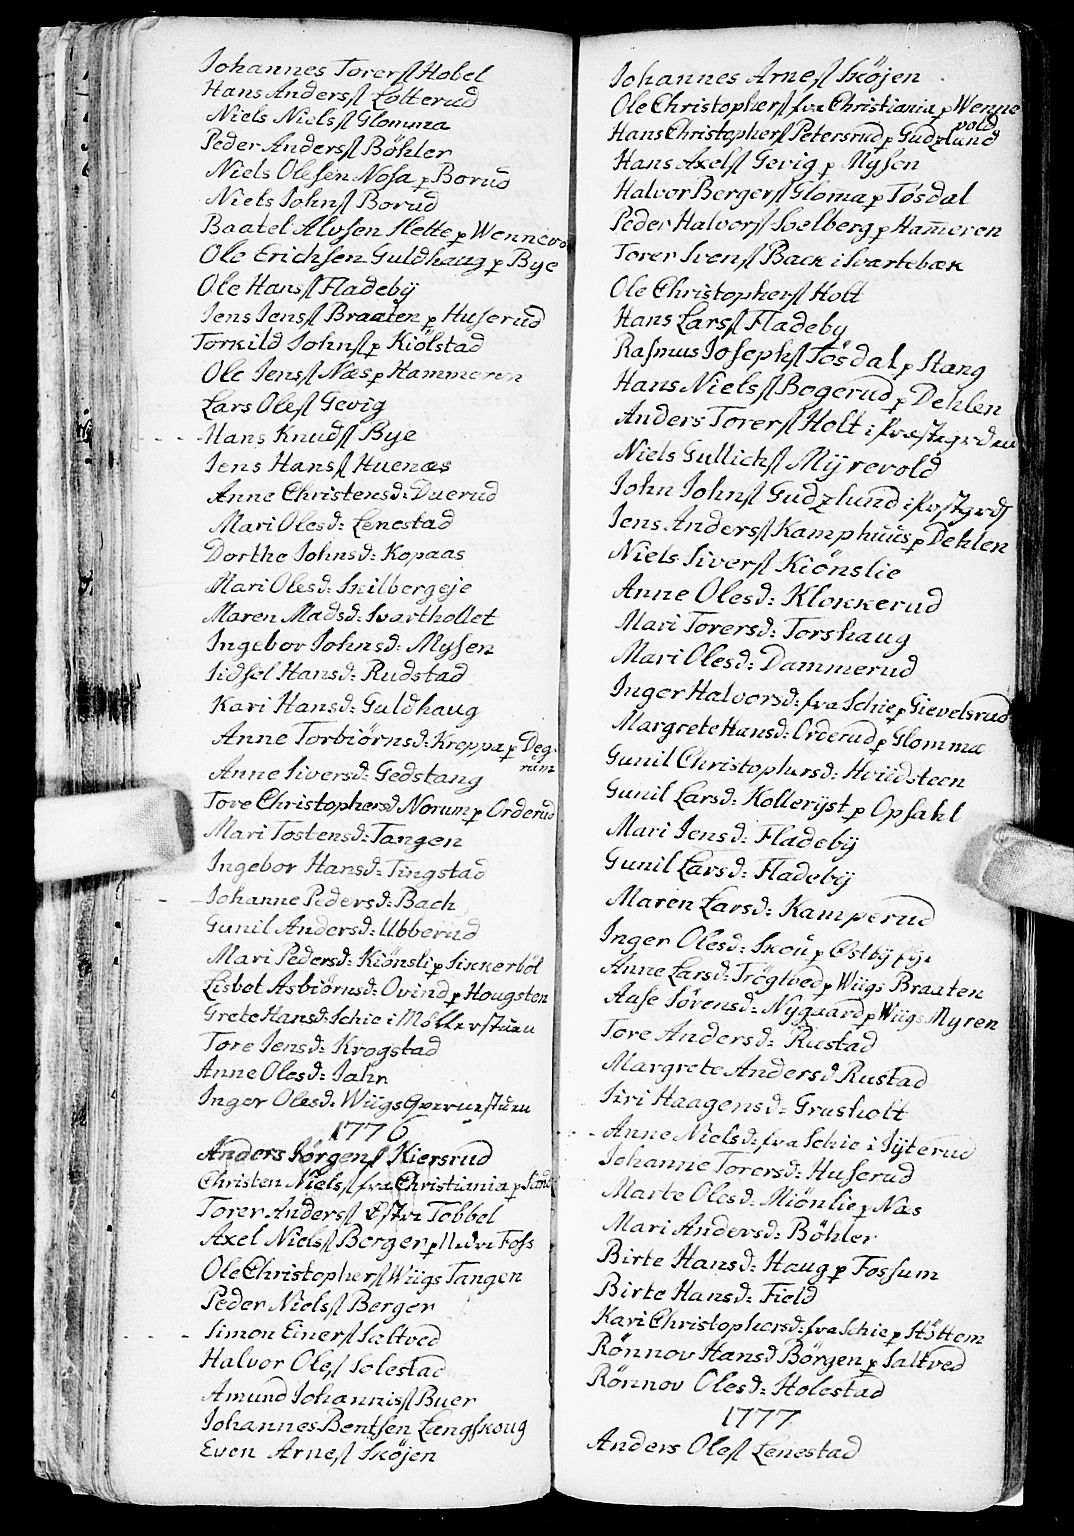 Johannes Torerſl Hobel
Hans Andersſl Lotterud
Niels Nielsſl Glomma
Peder Andersſl Böhler
Niels Olesen Nosa p Borud
Niels Johnſl Borud
Baatel Alvsen Slette p Wennevo
Ole Erichsen Guldhaug p Bye
Ole Hansſl Fladebÿ
Jens Jensſl Braaten p Huserud
Torkild Johnſl p Kiölstad
Ole Jensſl Næs p Hammeren
Lars Olesſl Gevig
Hans Knudſl Bye
Jens Hansſl Huenæs
Anne Christensd: Duerud
Mari Olesd: Lenestad
Dorthe Johnsd: Kopaas
Mari Olesd: Skilbergeje
Maren Madsd: Svarthollet
Ingebor Johnsd: Mysen
Sidsel Hansd: Rudstad
Kari Hansd: Guldhaug
Anne Torbiörnsd: Kroppa p Deg-
rum
Anne Siversd: Gedstang
Tore Christophersd Norum p Orderud
Mari Tostensd: Tangen
Ingebor Hansd: Tingstad
Johanne Pedersd: Bach
Gunil Andersd: Ubberud
Mari Pedersd: Kiönsli p Sikkerböl
Lisbet Asbiörnsd: Ovind p Hougsten
Grete Hansd: Schie i Möllerstuen
Tore Jensd: Krogstad
Anne Olesd: Jahr
Inger Olesd: Wiigs Qvernestuen
1776
Anders Jörgenſl Kiersrud
Christen Nielsſl fra Christiania p Sand
Torer Andersſl Østre Tobbel
Axel Nielsſl Berger p Nedre Foss
Ole Christopherſl Wiigs Tangen
Peder Nielsſl Berger
Simon Einerſl Sæltved
Halvor Olesſl Solestad
Amund Johannisſl Buer
Johannes Bentsen Langskoug
Even Arnesſl Sköjen
Johannes Arnesſl Sköjen
Ole Christopherſl fra Christiania p Wenne
vold
Hans Christopherſl Petersrud p Gudzlund
Hans Axelsſl Gevig p Mysen
Halvor Bergerſl Glom̅a p Tösdal
Peder Halvorſl Solberg p Ham̅eren
Torer Svensſl Back i Svartebæk
Ole Christopherſl Holt
Hans Larsſl Fladeby
Rasmus Josephſl Tösdal p Stang
Hans Nielsſl Bogerud p Dehlen
Anders Torerſl Holt i Præstegrden
Niels Gullichſl Mÿrevold
John Johnſl Gudzlund i Præstgrd
Jens Andersſl Kamphuus p Dehlen
Niels Siverſl Kiönslie
Anne Olesd: Klokkerud
Mari Torersd: Torshaug
Mari Olesd: Dammerud
Inger Halvorsd: fra Schie p Gievelsrud
Margrete Hansd: Orderud p Glomma
Gunil Christophersd: Hvidsteen
Gunil Larsd: Kollerÿst p Opsahl
Mari Jensd: Fladebÿ
Gunil Larsd: Fladebÿ
Maren Larsd: Kamperud
Inger Olesd: Skou p Østbÿ
Anne Larsd: Trögtved p Wiigs Braaten
Aase Sörensd: Nÿgaard p Wiigs Myren
Tore Andersd: Rustad
Margrete Andersd Rustad
Siri Haagensd: Grasholt
Anne Nielsd: fra Schie i Sÿterud
Johanne Torersd: Huserud
Marte Olesd: Miönlie p Næs
Mari Andersd: Böhler
Birte Hansd: Haug p Fossum
Birte Hansd: Field
Kari Christophersd: fra Schie p Stöttem
Rönnov Hansd Börgen p Saltved
Rönnov Olesd: Holestad
1777
Anders Olesſl Lenestad